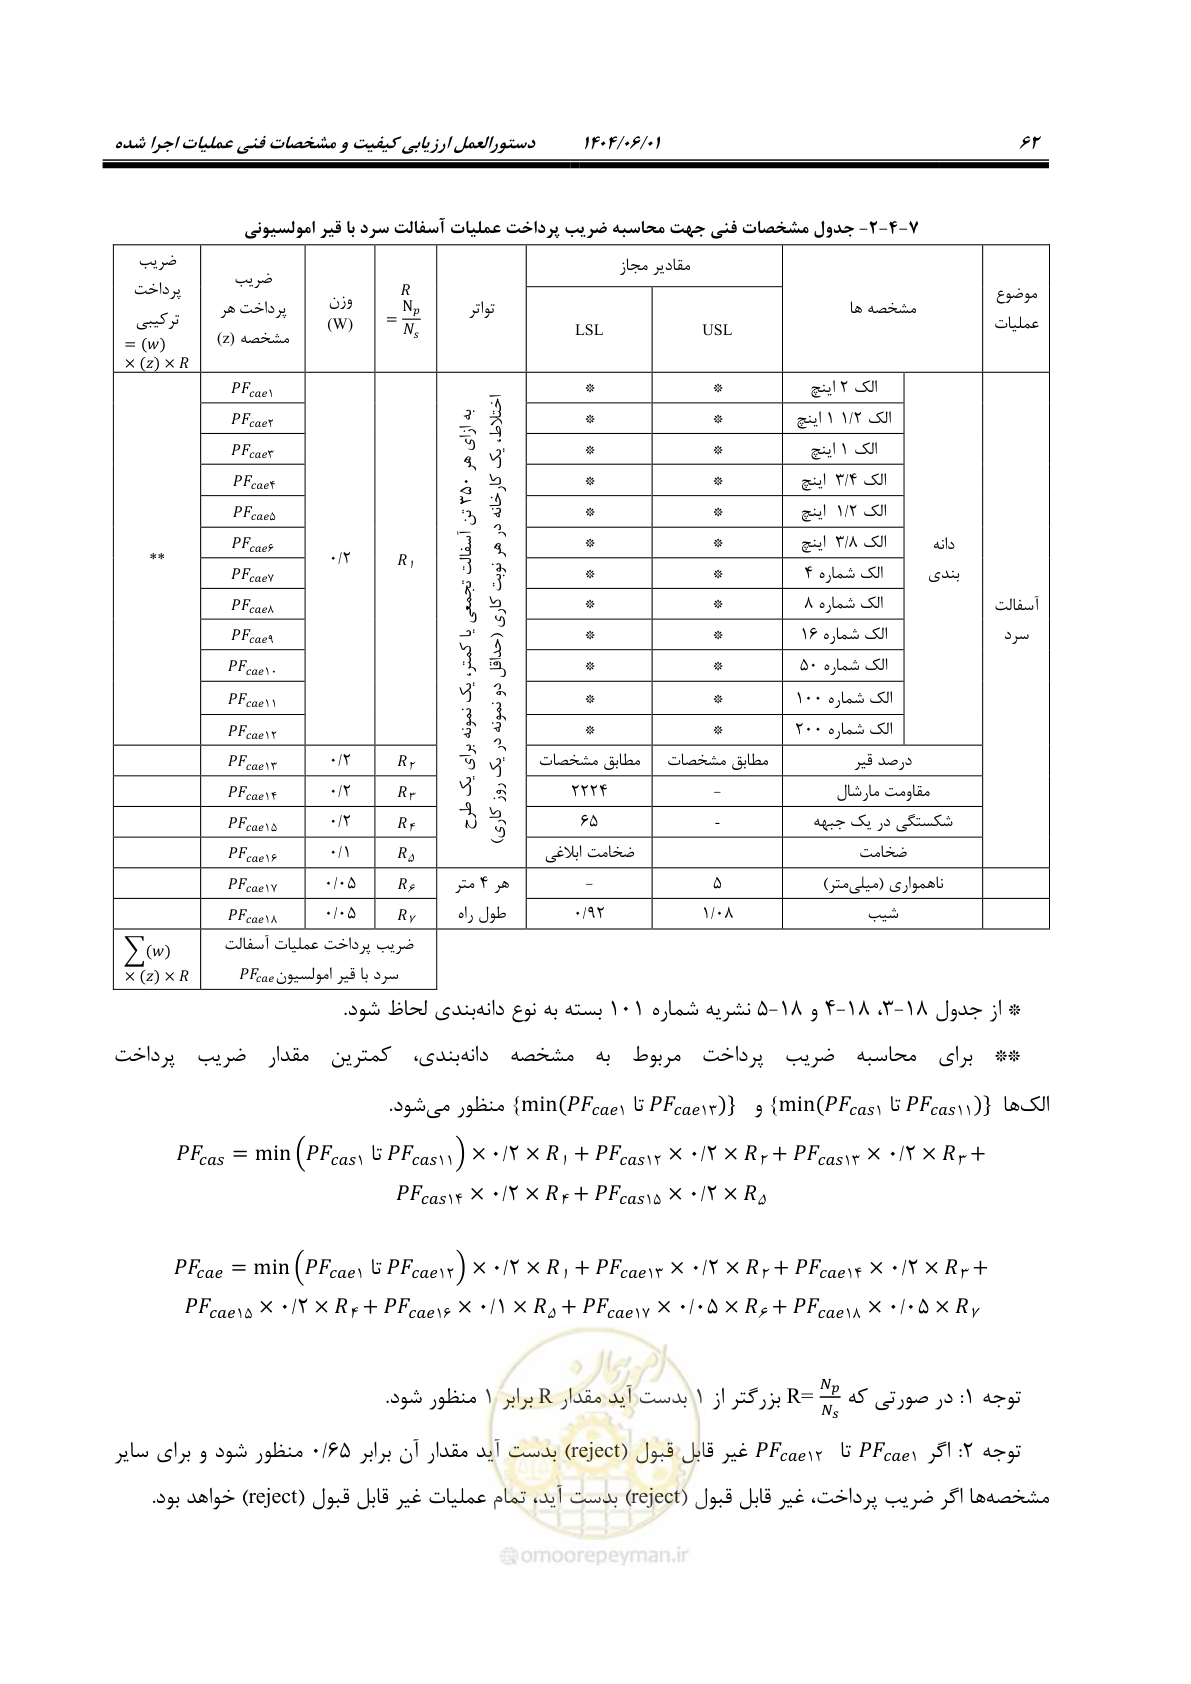 ۶۲ ۱۴۰۴/۰۶/۰۱ دستورالعمل ارزیابی کیفیت و مشخصات فنی عملیات اجرا شده
۷-۴-۲- جدول مشخصات فنی جهت محاسبه ضریب پرداخت عملیات آسفالت سرد با قیر امولسیونی
موضوع عملیات
مشخصه ها
مقادیر مجاز
USL
LSL
تواتر
R = Np/Ns
وزن (W)
ضریب پرداخت هر مشخصه (z)
ضریب پرداخت ترکیبی = (w) × (z) × R
آسفالت سرد
دانه بندی
به ازای هر ۳۵۰ تن آسفالت تجمعی یا کمتر، یک نمونه برای یک طرح
اختلاط، یک کارخانه در هر نوبت کاری (حداقل دو نمونه در یک روز کاری)
R۱ ۰/۲ **
الک ۲ اینچ * * PFcae۱
الک ۱/۲ ۱ اینچ * * PFcae۲
الک ۱ اینچ * * PFcae۳
الک ۳/۴ اینچ * * PFcae۴
الک ۱/۲ اینچ * * PFcae۵
الک ۳/۸ اینچ * * PFcae۶
الک شماره ۴ * * PFcae۷
الک شماره ۸ * * PFcae۸
الک شماره ۱۶ * * PFcae۹
الک شماره ۵۰ * * PFcae۱۰
الک شماره ۱۰۰ * * PFcae۱۱
الک شماره ۲۰۰ * * PFcae۱۲
درصد قیر مطابق مشخصات مطابق مشخصات R۲ ۰/۲ PFcae۱۳
مقاومت مارشال – ۲۲۲۴ R۳ ۰/۲ PFcae۱۴
شکستگی در یک جبهه - ۶۵ R۴ ۰/۲ PFcae۱۵
ضخامت ضخامت ابلاغی R۵ ۰/۱ PFcae۱۶
ناهمواری (میلی‌متر) ۵ – هر ۴ متر R۶ ۰/۰۵ PFcae۱۷
شیب ۱/۰۸ ۰/۹۲ طول راه R۷ ۰/۰۵ PFcae۱۸
ضریب پرداخت عملیات آسفالت
سرد با قیر امولسیون PFcae
∑(w) × (z) × R
* از جدول ۱۸-۳، ۱۸-۴ و ۱۸-۵ نشریه شماره ۱۰۱ بسته به نوع دانه‌بندی لحاظ شود.
** برای محاسبه ضریب پرداخت مربوط به مشخصه دانه‌بندی، کمترین مقدار ضریب پرداخت
الک‌ها {min(PFcas۱ تا PFcas۱۱)} و {min(PFcae۱ تا PFcae۱۳)} منظور می‌شود.
PFcas = min (PFcas۱ تا PFcas۱۱) × ۰/۲ × R۱ + PFcas۱۲ × ۰/۲ × R۲ + PFcas۱۳ × ۰/۲ × R۳ +
PFcas۱۴ × ۰/۲ × R۴ + PFcas۱۵ × ۰/۲ × R۵
PFcae = min (PFcae۱ تا PFcae۱۲) × ۰/۲ × R۱ + PFcae۱۳ × ۰/۲ × R۲ + PFcae۱۴ × ۰/۲ × R۳ +
PFcae۱۵ × ۰/۲ × R۴ + PFcae۱۶ × ۰/۱ × R۵ + PFcae۱۷ × ۰/۰۵ × R۶ + PFcae۱۸ × ۰/۰۵ × R۷
توجه ۱: در صورتی که R= Np/Ns بزرگتر از ۱ بدست آید مقدار R برابر ۱ منظور شود.
توجه ۲: اگر PFcae۱ تا PFcae۱۲ غیر قابل قبول (reject) بدست آید مقدار آن برابر ۰/۶۵ منظور شود و برای سایر
مشخصه‌ها اگر ضریب پرداخت، غیر قابل قبول (reject) بدست آید، تمام عملیات غیر قابل قبول (reject) خواهد بود.
امور پیمان
@omoorepeyman.ir